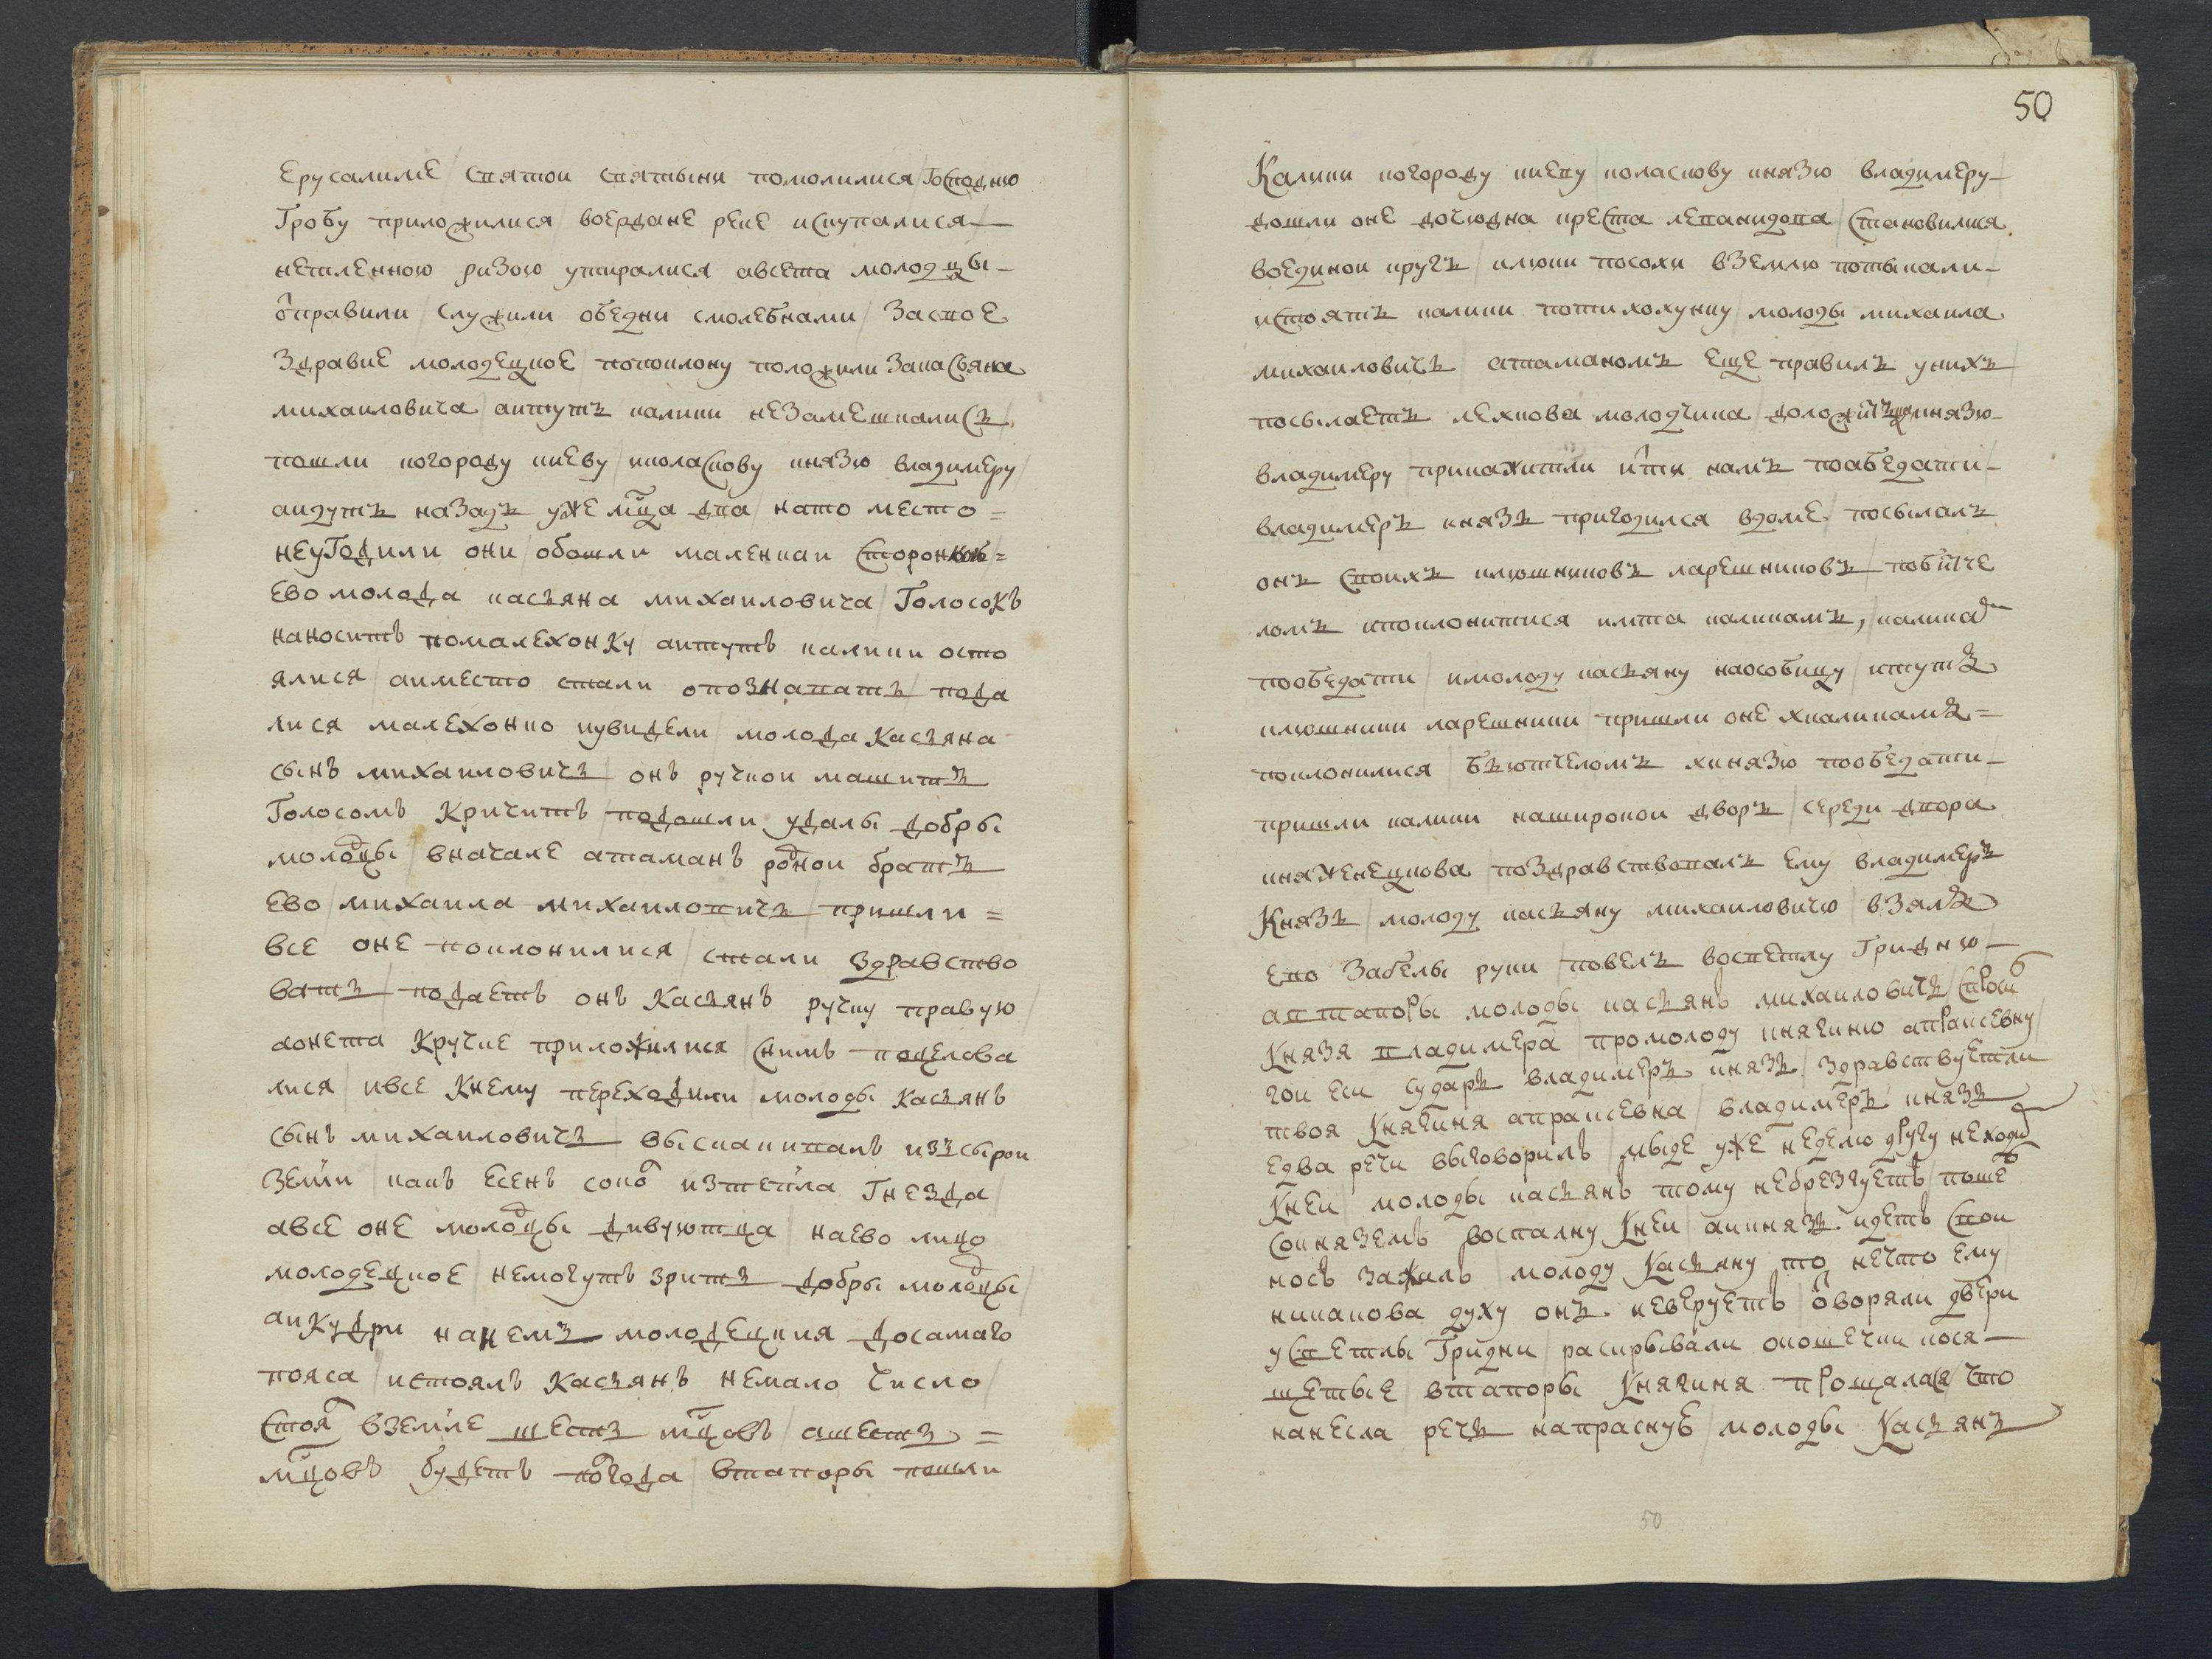 ерусалиме / святои святыни помолилися / Господню
гробу приложилися / воердане реке искупалися
нетленною ризою утиралися авсета молодцы
ѿправили / служили обедни смолебнами / засвое
здравие молодецкое / попоклону положили закасьяна
михаиловича / антутъ калики незамешкались
пошли когороду киеву / кколаскову князю владимеру /
аидутъ назадъ уже мца два / нато место =
неугодили они / обошли маленкаи стороною =
ево молода касьяна михаиловича / Голосокъ
наноситъ помалехонку / антутъ калики осто
ялися / аиместо стали опознавать / пода
лися малехонко иувидели / молода касьяна
сынъ михаиловичь / онъ ручкои машитъ
Голосомъ кричитъ / подошли удалы добры
молодцы / вначале атаманъ родной братъ
ево / михаила михаиловичь / пришли =
все оне поклонилися / стали здравство
вать / подаетъ онъ касьянъ ручку правую /
аонета кручке приложилися / снимъ поцелова
лися / ивсе кнему переходили / молоды касьянъ
сынъ михаиловичь / выскакивалъ изъсырои
земли / какъ есенъ соко изтепла гнезда /
авсе оне молодцы дивуютца / наево лицо
молодецкое / немогутъ зрить добры молодцы /
аикудри нанемъ молодецкия досамаго
пояса / истоялъ касьянъ немало число /
стоя вземле шесть мцовъ / ашесть =
мцовъ будетъ полгода / втапоры пошли
50
Калики когороду киеву / коласкову князю владимеру
дошли оне дочюдна креста леванидова / становилися
воединои кругъ / клюки посохи вземлю потыкали
истоятъ калики потихохунку / молоды михаила
михаиловичъ / атаманомъ еще правилъ унихъ /
посылаетъ лехкова молодчика / доложитца князю
владимеру / прикажитли итти намъ пообедати
владимеръ князь пригодился вдоме / посылалъ
онъ своихъ клюшниковъ ларешниковъ / побити че
ломъ ипоклонитися имта каликамъ, / каликам
пообедати / имолоду касьяну наособицу / итутъ
клюшники ларешники / пришли оне хкаликамъ =
поклонилися / бьютчеломъ хкнязю пообедати
пришли калики наширокои дворъ / середи двора
княженецкова / поздравствовалъ ему владимеръ
Князь / молоду касьяну михаиловичю / взялъ
ево забелы руки / повелъ восветлу гридню
автапоры молоды касьянъ михаиловичъ / спроси
Князя владимера / промолоду княгиню апраксевну /
гои еси сударь владимеръ князь / здравствуетли
твоя Княгиня апраксевна / владимеръ князь
едва речи выговорилъ / мыде уже неделю другу неходи
Кнеи / молоды касьянъ тому небрезгуетъ / поше
сокняземъ воспалну Кнеи / аикнязь идетъ свои
носъ зажалъ / молоду касьяну то нечто ему /
никакова духу онъ неверуетъ / ѿворяли двери
усветлы гридни / раскрывали окошечки кося
щетые / втапоры Княгиня прощалася / что
нанесла речь напрасную / молоды касьянъ
50